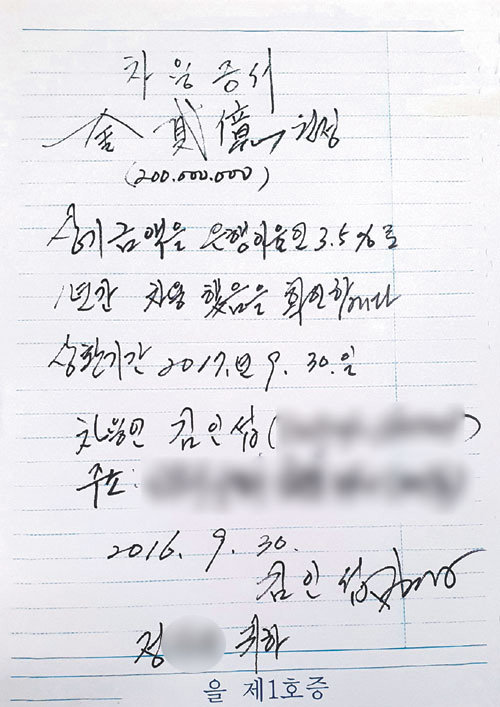 차용증서
金 貳億 원정
(200.000.000)
상기 금액을 은행이율인 3.5%로
1년간 차용했음을 확인합니다
상환기간 2017.년 9. 30.일
차용인 김인섭(
주소:
2016. 9. 30.
김인섭
정 귀하
을 제1호증